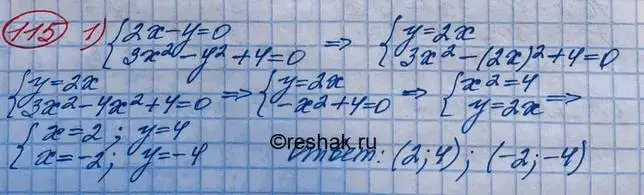 115 1) {2x-y=0 3x²-y²+4=0 => {y=2x 3x²-(2x)²+4=0
{y=2x 3x²-4x²+4=0 => {y=2x -x²+4=0 => {x²=4 y=2x =>
{x=2; y=4 x=-2; y=-4
©reshak.ru
Ответ: (2;4); (-2;-4)